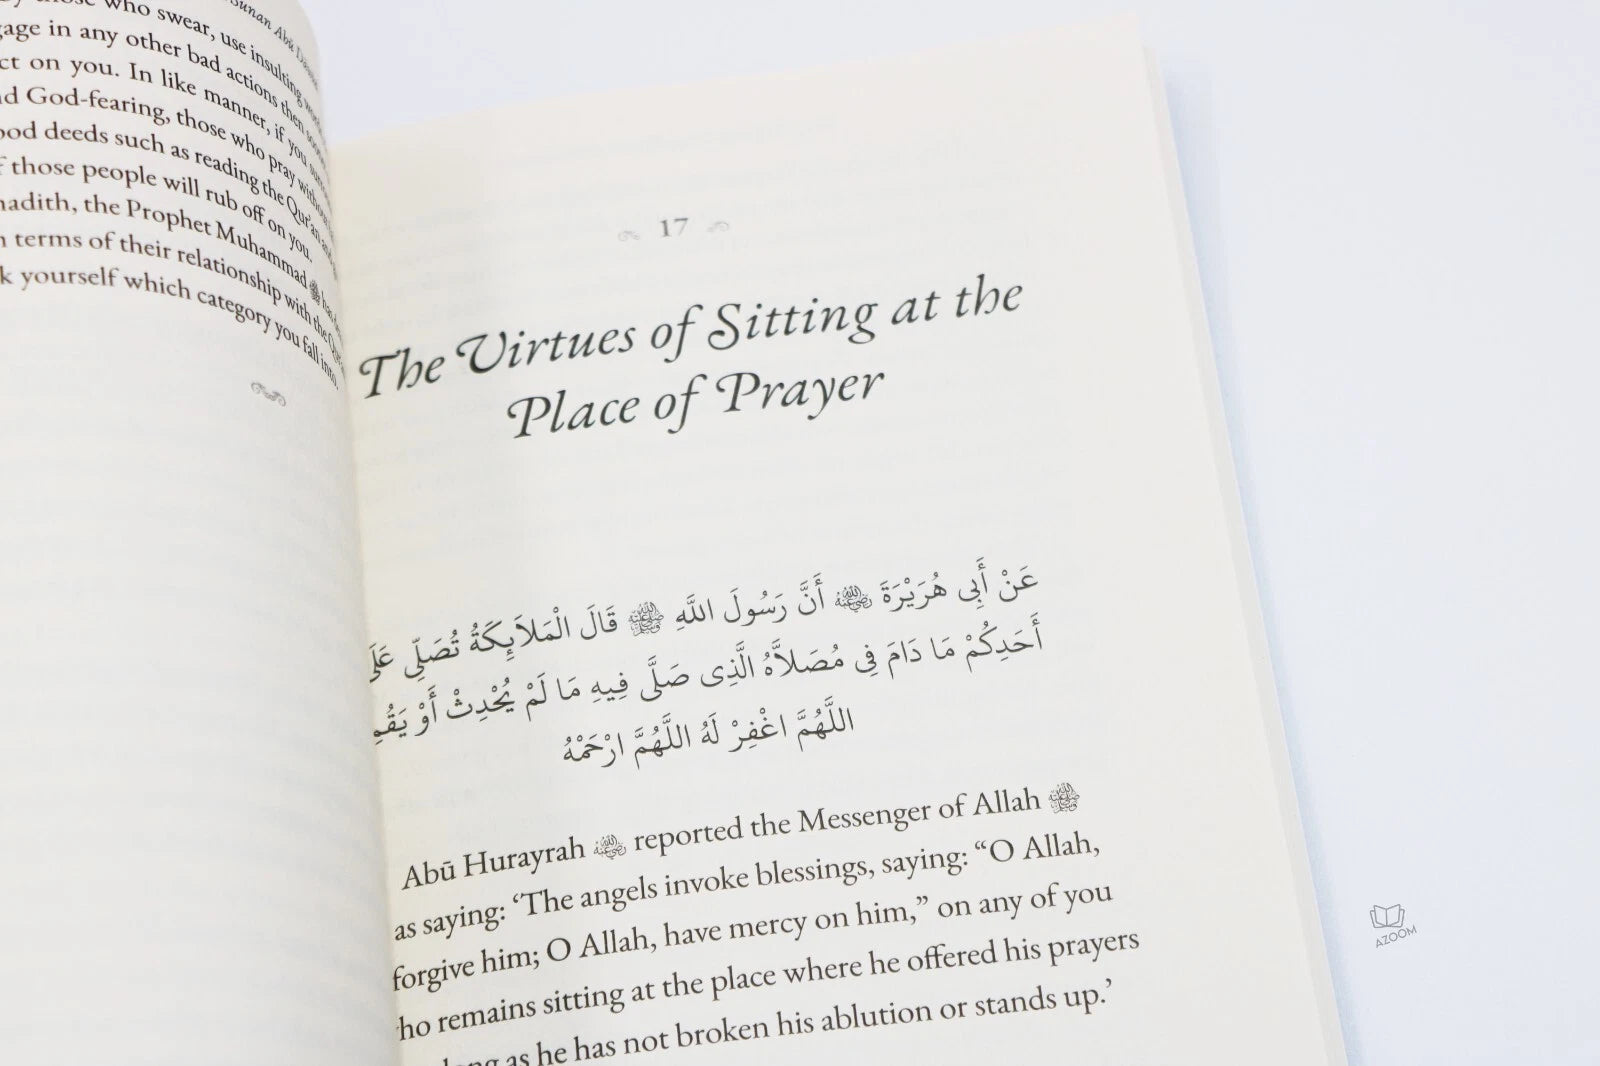 Sunan Abū
those who swear, use insulting
gage in any other bad actions then
ct on you. In like manner, if you
nd God-fearing, those who pray without
ood deeds such as reading the Qur'an and
f those people will rub off on you.
hadith, the Prophet Muhammad ﷺ has
n terms of their relationship with the
k yourself which category you fall into.
17
The Virtues of Sitting at the
Place of Prayer
عَنْ أَبِى هُرَيْرَةَ رضي الله عنه أَنَّ رَسُولَ اللَّهِ ﷺ قَالَ الْمَلاَئِكَةُ تُصَلِّى عَلَى
أَحَدِكُمْ مَا دَامَ فِى مُصَلاَّهُ الَّذِى صَلَّى فِيهِ مَا لَمْ يُحْدِثْ أَوْ يَقُمِ
اللَّهُمَّ اغْفِرْ لَهُ اللَّهُمَّ ارْحَمْهُ
Abū Hurayrah رضي الله عنه reported the Messenger of Allah ﷺ
as saying: ‘The angels invoke blessings, saying: “O Allah,
forgive him; O Allah, have mercy on him,” on any of you
who remains sitting at the place where he offered his prayers
long as he has not broken his ablution or stands up.’
AZOOM